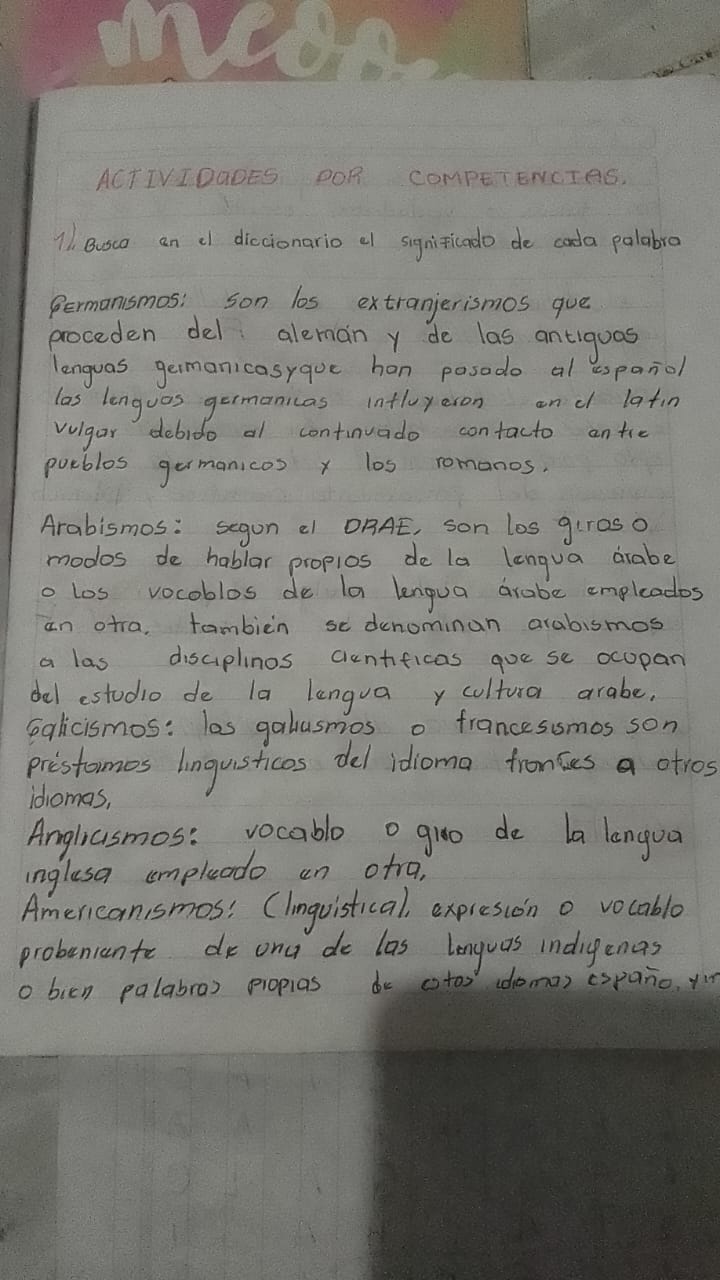 ACTIVIDADES POR COMPETENCIAS.
1). Busca en el diccionario el significado de cada palabra
Germanismos: son los extranjerismos que
proceden del alemán y de las antiguas
lenguas germanicas y que han pasado al español
las lenguas germanicas influyeron en el latin
vulgar debido al continuado contacto entre
pueblos germanicos y los romanos.
Arabismos: segun el DRAE, son los giros o
modos de hablar propios de la lengua árabe
o los vocablos de la lengua árabe empleados
en otra. también se denominan arabismos
a las disciplinas cientificas que se ocupan
del estudio de la lengua y cultura arabe,
Galicismos: los galicismos o francesismos son
préstamos linguisticos del idioma francés a otros
idiomas,
Anglicismos: vocablo o giro de la lengua
inglesa empleado en otra,
Americanismos: (linguistica), expresión o vocablo
probeniente de una de las lenguas indigenas
o bien palabras propias de estos idiomas españo,